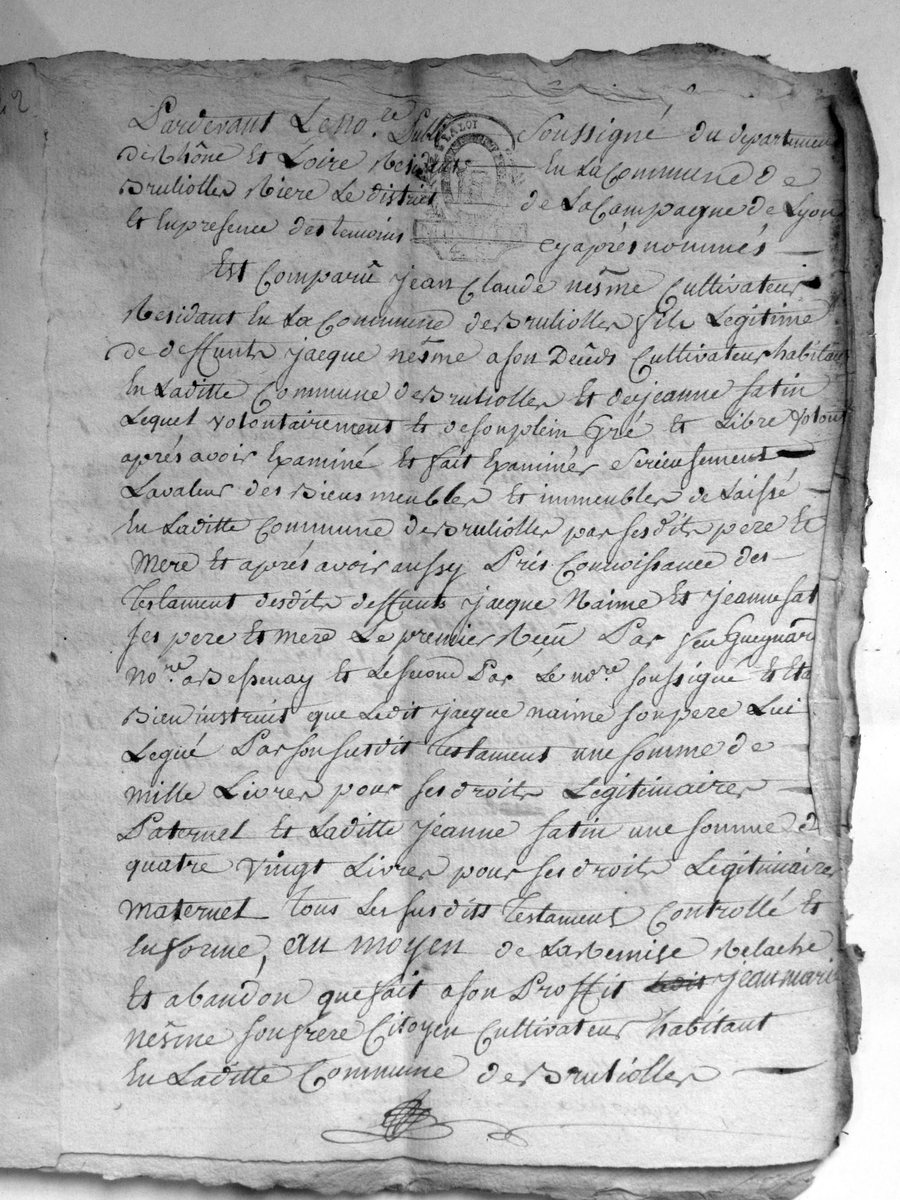 Pardevant Le no.re Public Soussigné du departement
de Rhône Et Loire Residant En La Commune de
Brulioller Riere Le district de La Campagne de Lyon
Et En presence des temoins cy après nommés
Est Comparu jean Claude nesme Cultivateur
Residant En La Commune de Brulioller fils Legitime
de deffunts jacque nesme a son Decéds Cultivateur habitant
En Laditte Commune de Brulioller Et de jeanne Satin
Lequel volontairement Et de son plein Gré Et Libre volonté
après avoir Examiné Et fait Examiner Serieusement
La valeur des Biens meubles Et immeubles de Laissé
En Laditte Commune de Brulioller par ses dits pere Et
Mere Et après avoir aussy Pris Connoissance des
Testament desdits deffunts jacque Naime Et jeanne Sat
ses pere Et mere Le premier Reçu Par feu Guegnard
no.re a Bessenay Et Le second Par Le no.re soussigné Et Eta
Bien instruit que Ledit jacque naime son pere Lui
Legué Par son susdit Testament une somme de
mille Livres pour ses droits Legitimaires
Paternel Et Laditte jeanne Satin une somme de
quatre vingt Livres pour ses droits Legitimaires
maternel tous Les susdits Testament Controllé Et
En forme, au moyen de La Remise Relache
Et abandon que fait a son Proffit jean marie
nesme son frere Citoyen Cultivateur habitant
En Laditte Commune de Brulioller